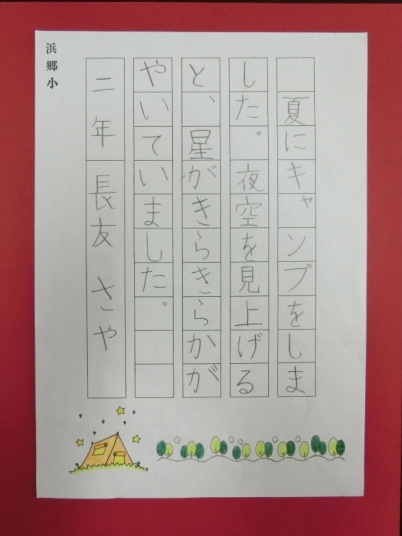 夏にキャンプをしま
した。夜空を見上げる
と、星がきらきらかが
やいていました。
二年 長友 さや
浜郷小